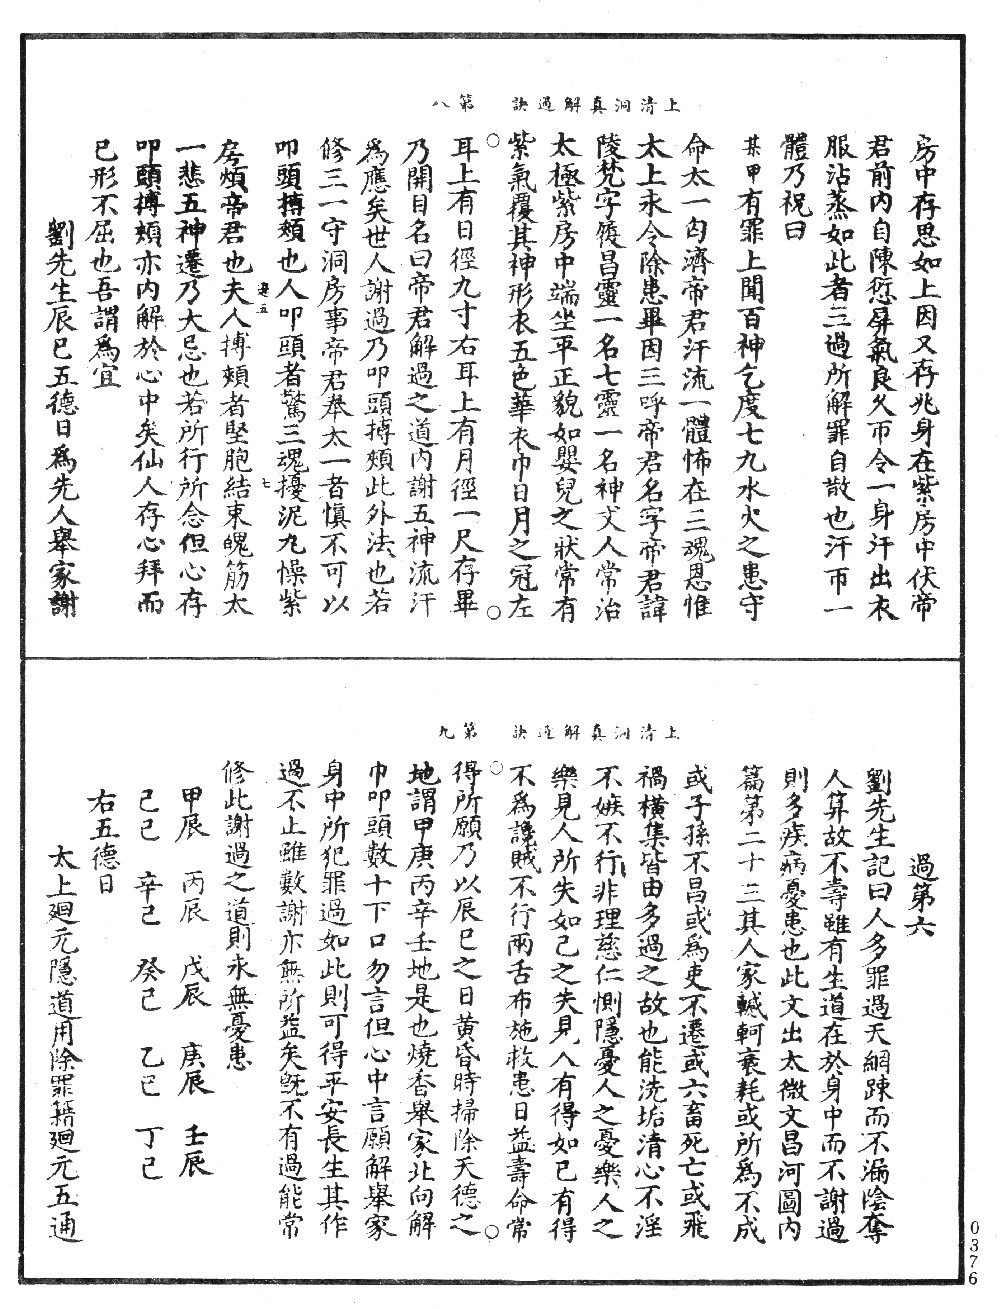 上清洞真解過訣　第八
房中存思如上因又存兆身在紫房中伏帝
君前内自陳愆屏氣良久帀令一身汗出衣
服沾蒸如此者三過所解罪自散也汗帀一
體乃祝曰
某甲有罪上聞百神乞度七九水火之患守
命太一匃濟帝君汗流一體怖在三魂恩惟
太上永令除患畢因三呼帝君名字帝君諱
陵梵字履昌靈一名七靈一名神丈人常治
太極紫房中端坐平正貌如嬰兒之狀常有
紫氣覆其神形衣五色華衣巾日月之冠左
耳上有日徑九寸右耳上有月徑一尺存畢
乃開目名曰帝君解過之道内謝五神流汗
為應矣世人謝過乃叩頭搏頰此外法也若
修三一守洞房事帝君奉太一者慎不可以
叩頭搏頰也人叩頭者驚三魂擾泥丸懆紫
遜五　七
房煩帝君也夫人搏頰者堅胞結束魄筋太
一悲五神遷乃大忌也若所行所念但心存
叩頭搏頰亦内解於心中矣仙人存心拜而
已形不屈也吾謂為宜
劉先生辰巳五德日為先人舉家謝
上清洞真解過訣　第九
過第六
劉先生記曰人多罪過天網踈而不漏陰奪
人算故不壽雖有生道在於身中而不謝過
則多疾病憂患也此文出太微文昌河圖内
篇第二十三其人家轗軻衰耗或所為不成
或子孫不昌或為吏不遷或六畜死亡或飛
禍橫集皆由多過之故也能洗垢清心不淫
不嫉不行非理慈仁惻隱憂人之憂樂人之
樂見人所失如己之失見人有得如己有得
不為讒賊不行兩舌布施救患日益壽命常
得所願乃以辰巳之日黄昏時掃除天德之
地謂甲庚丙辛壬地是也燒香舉家北向解
巾叩頭數十下口勿言但心中言願解舉家
身中所犯罪過如此則可得平安長生其作
過不止雖數謝亦無所益矣既不有過能常
修此謝過之道則永無憂患
甲辰　丙辰　戊辰　庚辰　壬辰
己巳　辛巳　癸巳　乙巳　丁巳
右五德日
太上迴元隱道用除罪籍迴元五通
0376